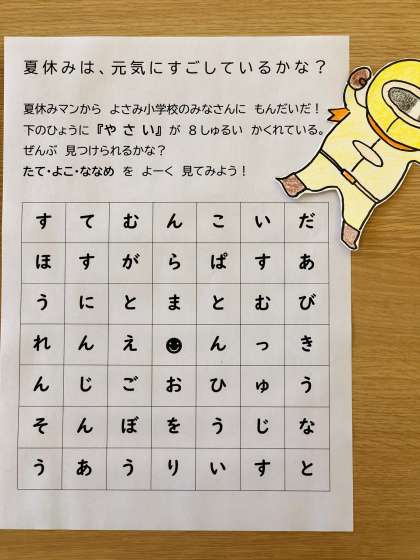 夏休みは、元気にすごしているかな？
夏休みマンから よさみ小学校のみなさんに もんだいだ！
下のひょうに『や さ い』が ８しゅるい かくれている。
ぜんぶ 見つけられるかな？
たて・よこ・ななめ を よーく 見てみよう！
す て む ん こ い だ
ほ す が ら ぱ す あ
う に と ま と む び
れ ん え ん っ き
ん じ ご お ひ ゅ う
そ ん ぼ を う じ な
う あ う り い す と